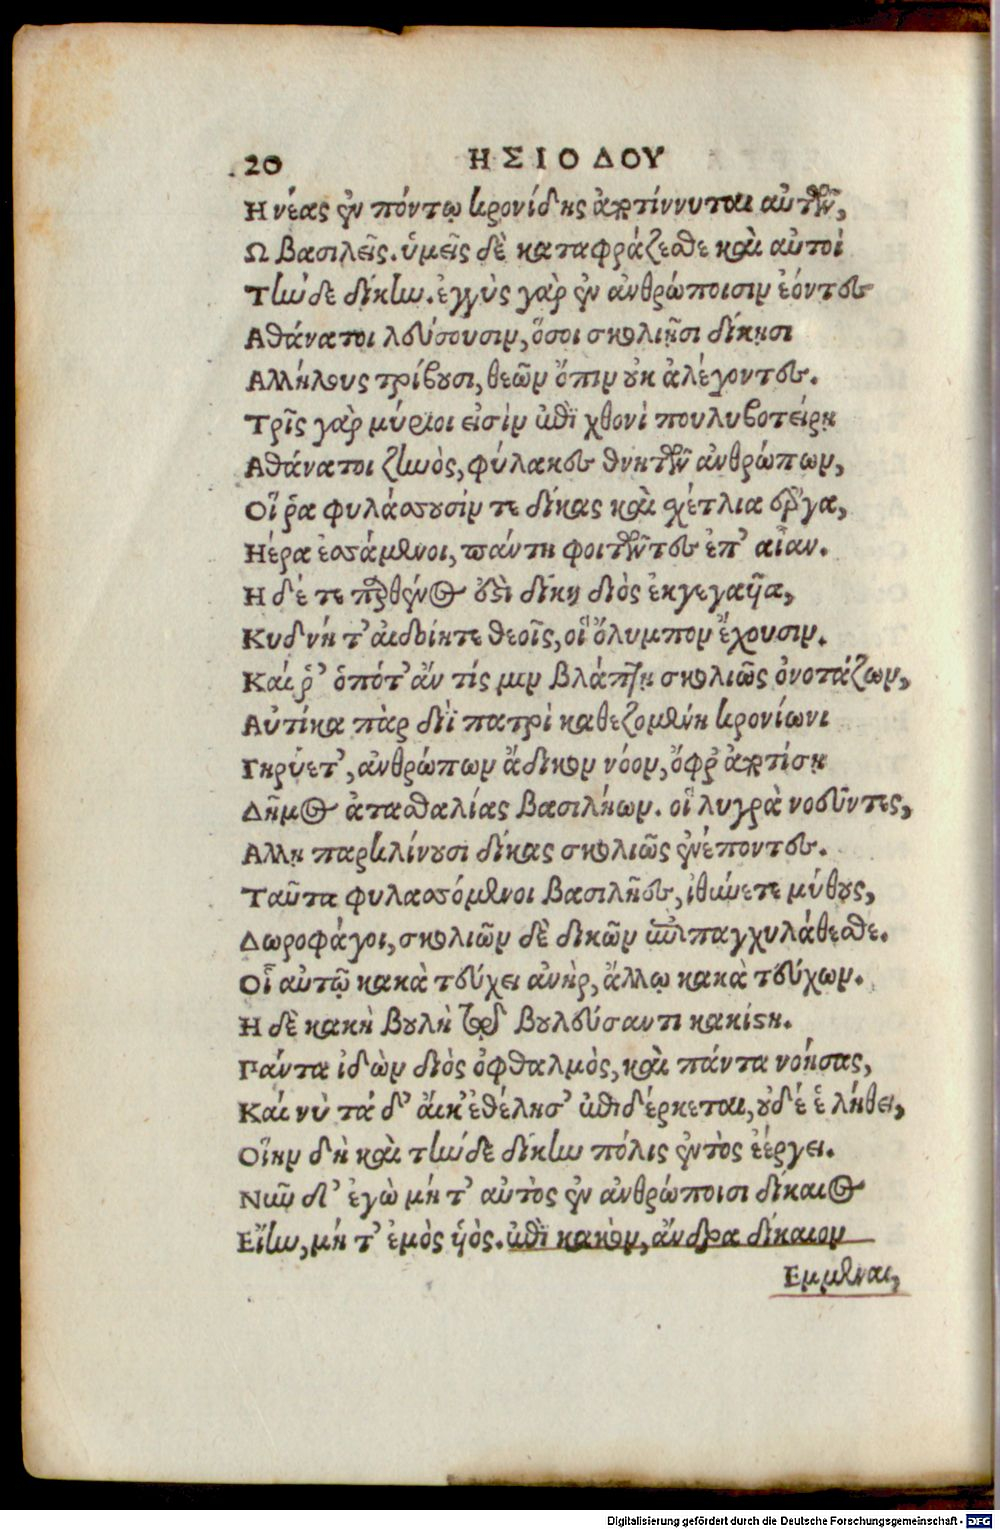 20 ΗΣΙΟΔΟΥ
Η νέας ἐν πόντῳ κρονίδης ἀπτίννυται αὐτῶν,
Ω βασιλεῖς. ὑμεῖς δὲ καταφράζεσθε καὶ αὐτοὶ
Τἠνδε δίκην. ἐγγὺς γὰρ ἐν ἀνθρώποισιν ἐόντες
Αθάνατοι λεύσουσιν, ὅσοι σκολιῇσι δίκῃσι
Αλλήλους τρίβουσι, θεῶν ὄπιν οὐκ ἀλέγοντες.
Τρῖς γὰρ μύριοι εἰσὶν ἐπὶ χθονὶ πουλυβοτείρῃ
Αθάνατοι ζηνὸς, φύλακες θνητῶν ἀνθρώπων,
Οἵ ῥα φυλάσσουσίν τε δίκας καὶ σχέτλια ἔργα,
Ηέρα ἑσσάμενοι, πάντη φοιτῶντες ἐπ' αἶαν.
Η δέ τε παρθένος ἐστὶ δίκη διὸς ἐκγεγαυῖα,
Κυδνή τ' αἰδοίητε θεοῖς, οἳ ὄλυμπον ἔχουσιν.
Καί ῥ' ὁπότ' ἄν τίς μιν βλάπτῃ σκολιῶς ὀνοτάζων,
Αὐτίκα πὰρ διῒ πατρὶ καθεζομένη κρονίωνι
Γηρύετ', ἀνθρώπων ἄδικον νόον, ὄφρ' ἀποτίσῃ
Δῆμος ἀτασθαλίας βασιλήων. οἳ λυγρὰ νοεῦντες,
Αλλη παρκλίνουσι δίκας σκολιῶς ἐνέποντες.
Ταῦτα φυλασσόμενοι βασιλῆες, ἰθύνετε μύθους,
Δωροφάγοι, σκολιῶν δὲ δικῶν ἐπιπαγχυλάθεσθε.
Οἷ αὐτῷ κακὰ τεύχει ἀνὴρ, ἄλλῳ κακὰ τεύχων.
Η δὲ κακὴ βουλὴ τῷ βουλεύσαντι κακίστη.
Πάντα ἰδὼν διὸς ὀφθαλμὸς, καὶ πάντα νοήσας,
Καί νυ τά δ' αἴκ' ἐθέλησ' ἐπιδέρκεται, οὐδέ ἑ λήθει,
Οἵην δὴ καὶ τἠνδε δίκην πόλις ἐντὸς ἐέργει.
Νῦν δ' ἐγὼ μή τ' αὐτὸς ἐν ἀνθρώποισι δίκαιος
Εἴην, μή τ' ἐμὸς υἱός. ἐπὶ κακὸν, ἄνδρα δίκαιον
Εμμεναι,
Digitalisierung gefördert durch die Deutsche Forschungsgemeinschaft - DFG